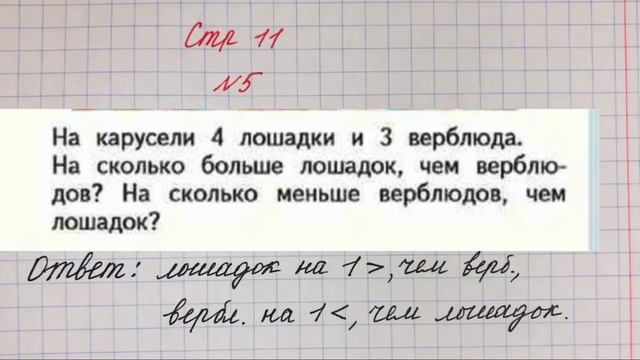 Стр 11
N5
На карусели 4 лошадки и 3 верблюда.
На сколько больше лошадок, чем верблю-
дов? На сколько меньше верблюдов, чем
лошадок?
Ответ: лошадок на 1 >, чем верб.,
вербл. на 1 <, чем лошадок.